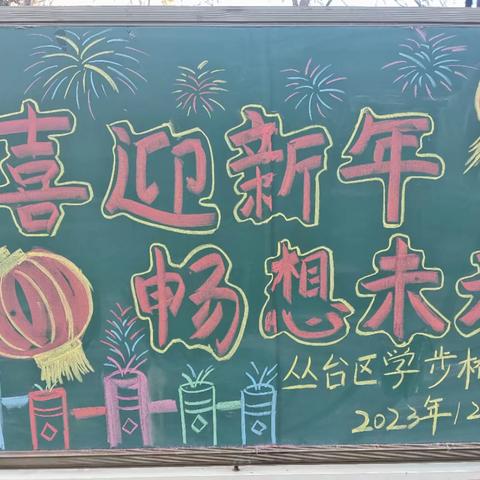 喜迎新年
畅想未
丛台区学步
2023年12